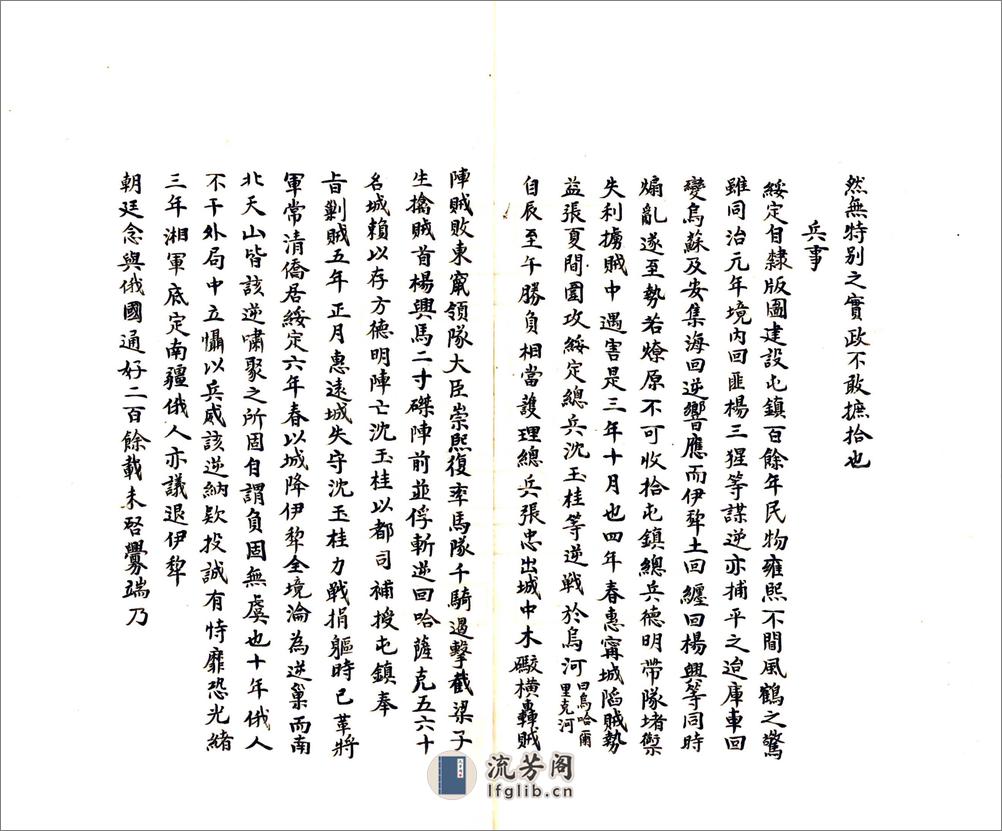 然無特别之實政不敢摭拾也
兵事
綏定自隸版圖建設屯鎮百餘年民物雍熙不聞風鶴之驚
雖同治元年境內回匪楊三猩等謀逆亦捕平之迨庫車回
變烏蘇及安集海回逆響應而伊犂土回纏回楊興等同時
煽亂遂至勢若燎原不可收拾屯鎮總兵德明帶隊堵禦
失利擄賊中遇害是三年十月也四年春惠甯城陷賊勢
益張夏間圍攻綏定總兵沈玉桂等逆戰於烏河曰烏哈爾里克河
自辰至午勝負相當護理總兵張忠出城中木礮橫轟賊
陣賊敗東竄領隊大臣崇熙復率馬隊千騎邀擊截梁子
生擒賊首楊興馬二寸磔陣前並俘斬逆回哈薩克五六十
名城賴以存方德明陣亡沈玉桂以都司補授屯鎮奉
旨剿賊五年正月惠遠城失守沈玉桂力戰捐軀時已革將
軍常清僑居綏定六年春以城降伊犂全境淪為逆巢而南
北天山皆該逆嘯聚之所固自謂負固無虞也十年俄人
不干外局中立懾以兵威該逆納欵投誠有恃靡恐光緒
三年湘軍底定南疆俄人亦議退伊犂
朝廷念與俄國通好二百餘載未啓釁端乃
流芳阁
lfglib.cn